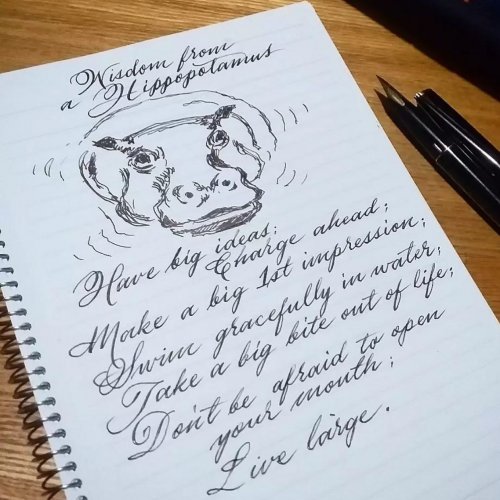 Wisdom from
a Hippopotamus
Have big ideas;
Charge ahead;
Make a big 1st impression;
Swim gracefully in water;
Take a big bite out of life;
Don't be afraid to open
your mouth;
Live large.